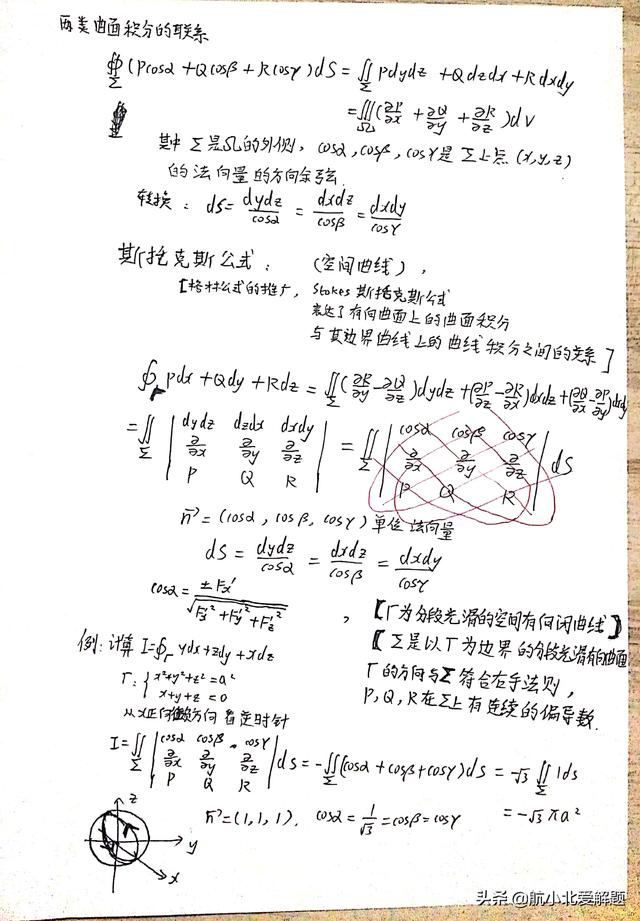 两类曲面积分的联系
∯_Σ (Pcosα + Qcosβ + Rcosγ)dS = ∬_Σ Pdydz + Qdzdx + Rdxdy
= ∭_Ω (∂P/∂x + ∂Q/∂y + ∂R/∂z)dv
其中Σ是Ω的外侧, cosα, cosβ, cosγ是Σ上点(x,y,z)
的法向量的方向余弦.
转换: dS = dydz/cosα = dxdz/cosβ = dxdy/cosγ
斯托克斯公式: (空间曲线),
【格林公式的推广, Stokes斯托克斯公式
表达了有向曲面上的曲面积分
与其边界曲线上的曲线积分之间的关系]
∮_Γ Pdx + Qdy + Rdz = ∬_Σ (∂R/∂y - ∂Q/∂z)dydz + (∂P/∂z - ∂R/∂x)dxdz + (∂Q/∂x - ∂P/∂y)dxdy
= ∬_Σ | dydz dzdx dxdy | = ∬_Σ | cosα cosβ cosγ | dS
| ∂/∂x ∂/∂y ∂/∂z | | ∂/∂x ∂/∂y ∂/∂z |
| P Q R | | P Q R |
n⃗ = (cosα, cosβ, cosγ) 单位法向量
dS = dydz/cosα = dxdz/cosβ = dxdy/cosγ
cosα = ±Fx'/√(Fx'² + Fy'² + Fz'²)
, 【Γ为分段光滑的空间有向闭曲线】
【Σ是以Γ为边界的分段光滑有向曲面
Γ的方向与Σ符合右手法则,
P, Q, R在Σ上有连续的偏导数.
例: 计算 I = ∮_Γ ydx + zdy + xdz
Γ: { x² + y² + z² = a²
x + y + z = 0
从x正向 方向看是时针
I = ∬_Σ | cosα cosβ cosγ | dS = -∬_Σ (cosα + cosβ + cosγ)dS = -√3 ∬_Σ 1ds
| ∂/∂x ∂/∂y ∂/∂z |
| P Q R |
n⃗ = (1, 1, 1). cosα = 1/√3 = cosβ = cosγ = -√3πa²
z
y
x
头条 @航小北爱解题